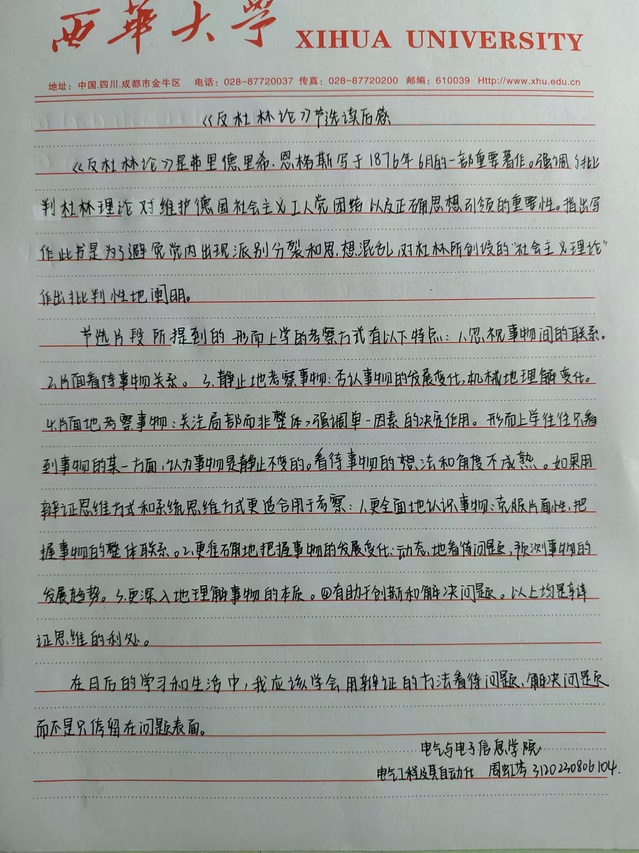 西华大学 XIHUA UNIVERSITY
地址：中国.四川.成都市金牛区 电话：028-87720037 传真：028-87720200 邮编：610039 Http://www.xhu.edu.cn
《反杜林论》节选读后感
《反杜林论》是弗里德里希·恩格斯写于1876年6月的一部重要著作。强调了批
判杜林理论对维护德国社会主义工人党团结以及正确思想引领的重要性。指出写
作此书是为了避免党内出现派别分裂和思想混乱，对杜林所创设的“社会主义理论”
作出批判性地阐明。
节选片段所提到的形而上学的考察方式有以下特点：1.忽视事物间的联系。
2.片面看待事物关系。 3.静止地考察事物：否认事物的发展变化，机械地理解变化。
4.片面地考察事物：关注局部而非整体，强调单一因素的决定作用。形而上学往往只看
到事物的某一方面，认为事物是静止不变的。看待事物的想法和角度不成熟。如果用
辩证思维方式和系统思维方式更适合用于考察：1.更全面地认识事物：克服片面性，把
握事物的整体联系。2.更准确地把握事物的发展变化：动态地看待问题，预测事物的
发展趋势。3.更深入地理解事物的本质。④有助于创新和解决问题。以上均是辩
证思维的利处。
在日后的学习和生活中，我应该学会用辩证的方法看待问题，解决问题
而不是只停留在问题表面。
电气与电子信息学院
电气工程及其自动化 周虹岑 3120230806104.